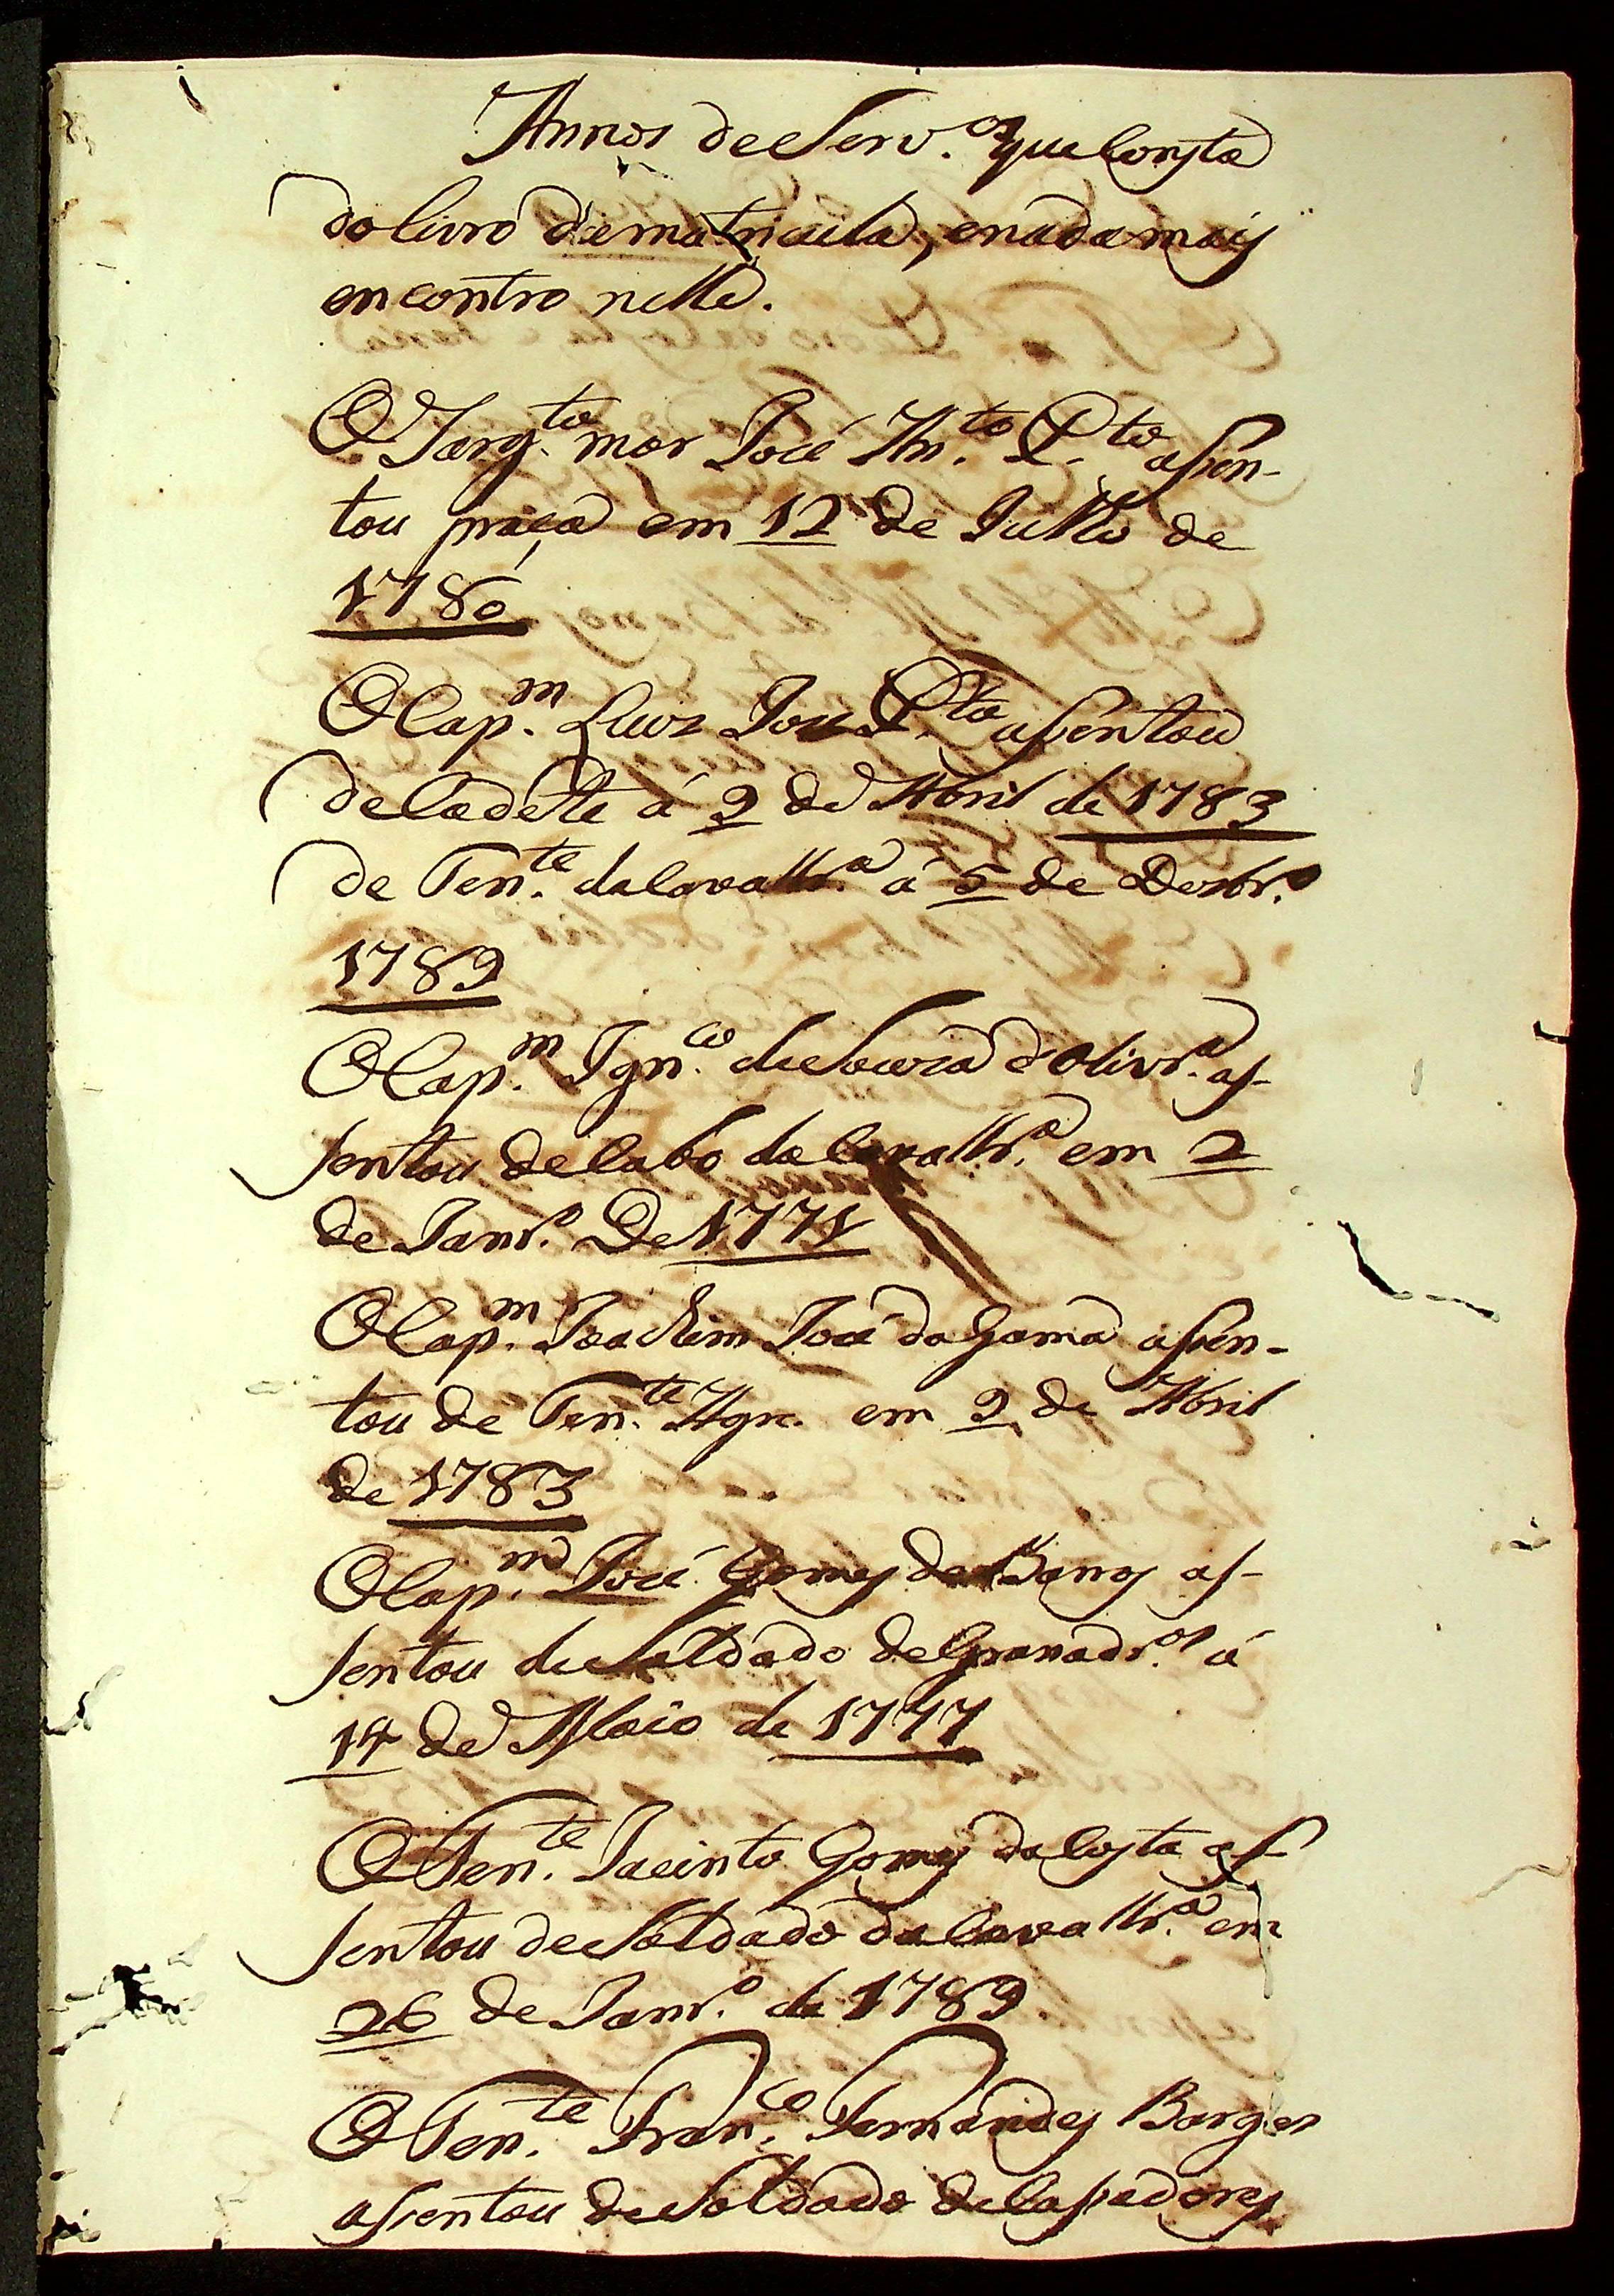 Annos de Serv.os que Consta
do livro de matricula, e nada mais
encontro nelle.
O Sarg.to mor José An.to P.to assen-
tou praça em 12 de Julho de
1786
O Cap.m Luiz José P.to assentou
de Cadete á 2 de Abril de 1783
de Ten.te da Cavallr.a á 5 de Dezbr.o
1789
O Cap.m Ign.co de Souza d'Olivr.a as-
sentou de Cabo da Cavallr.a em 2
de Janr.o De 1771
O Cap.m Joachim José da Gama assen-
tou de Ten.te Agr. em 2 de Abril
de 1783
O Cap.m José Gomes de Barros as-
sentou de Soldado de Granadr.os á
14 de Maio de 1777
O Ten.te Jacinto Gomes da Costa as-
sentou de Soldado da Cavallr.a em
26 de Janr.o de 1789
O Ten.te Fran.co Fernandes Borges
assentou de Soldado de Cassadores